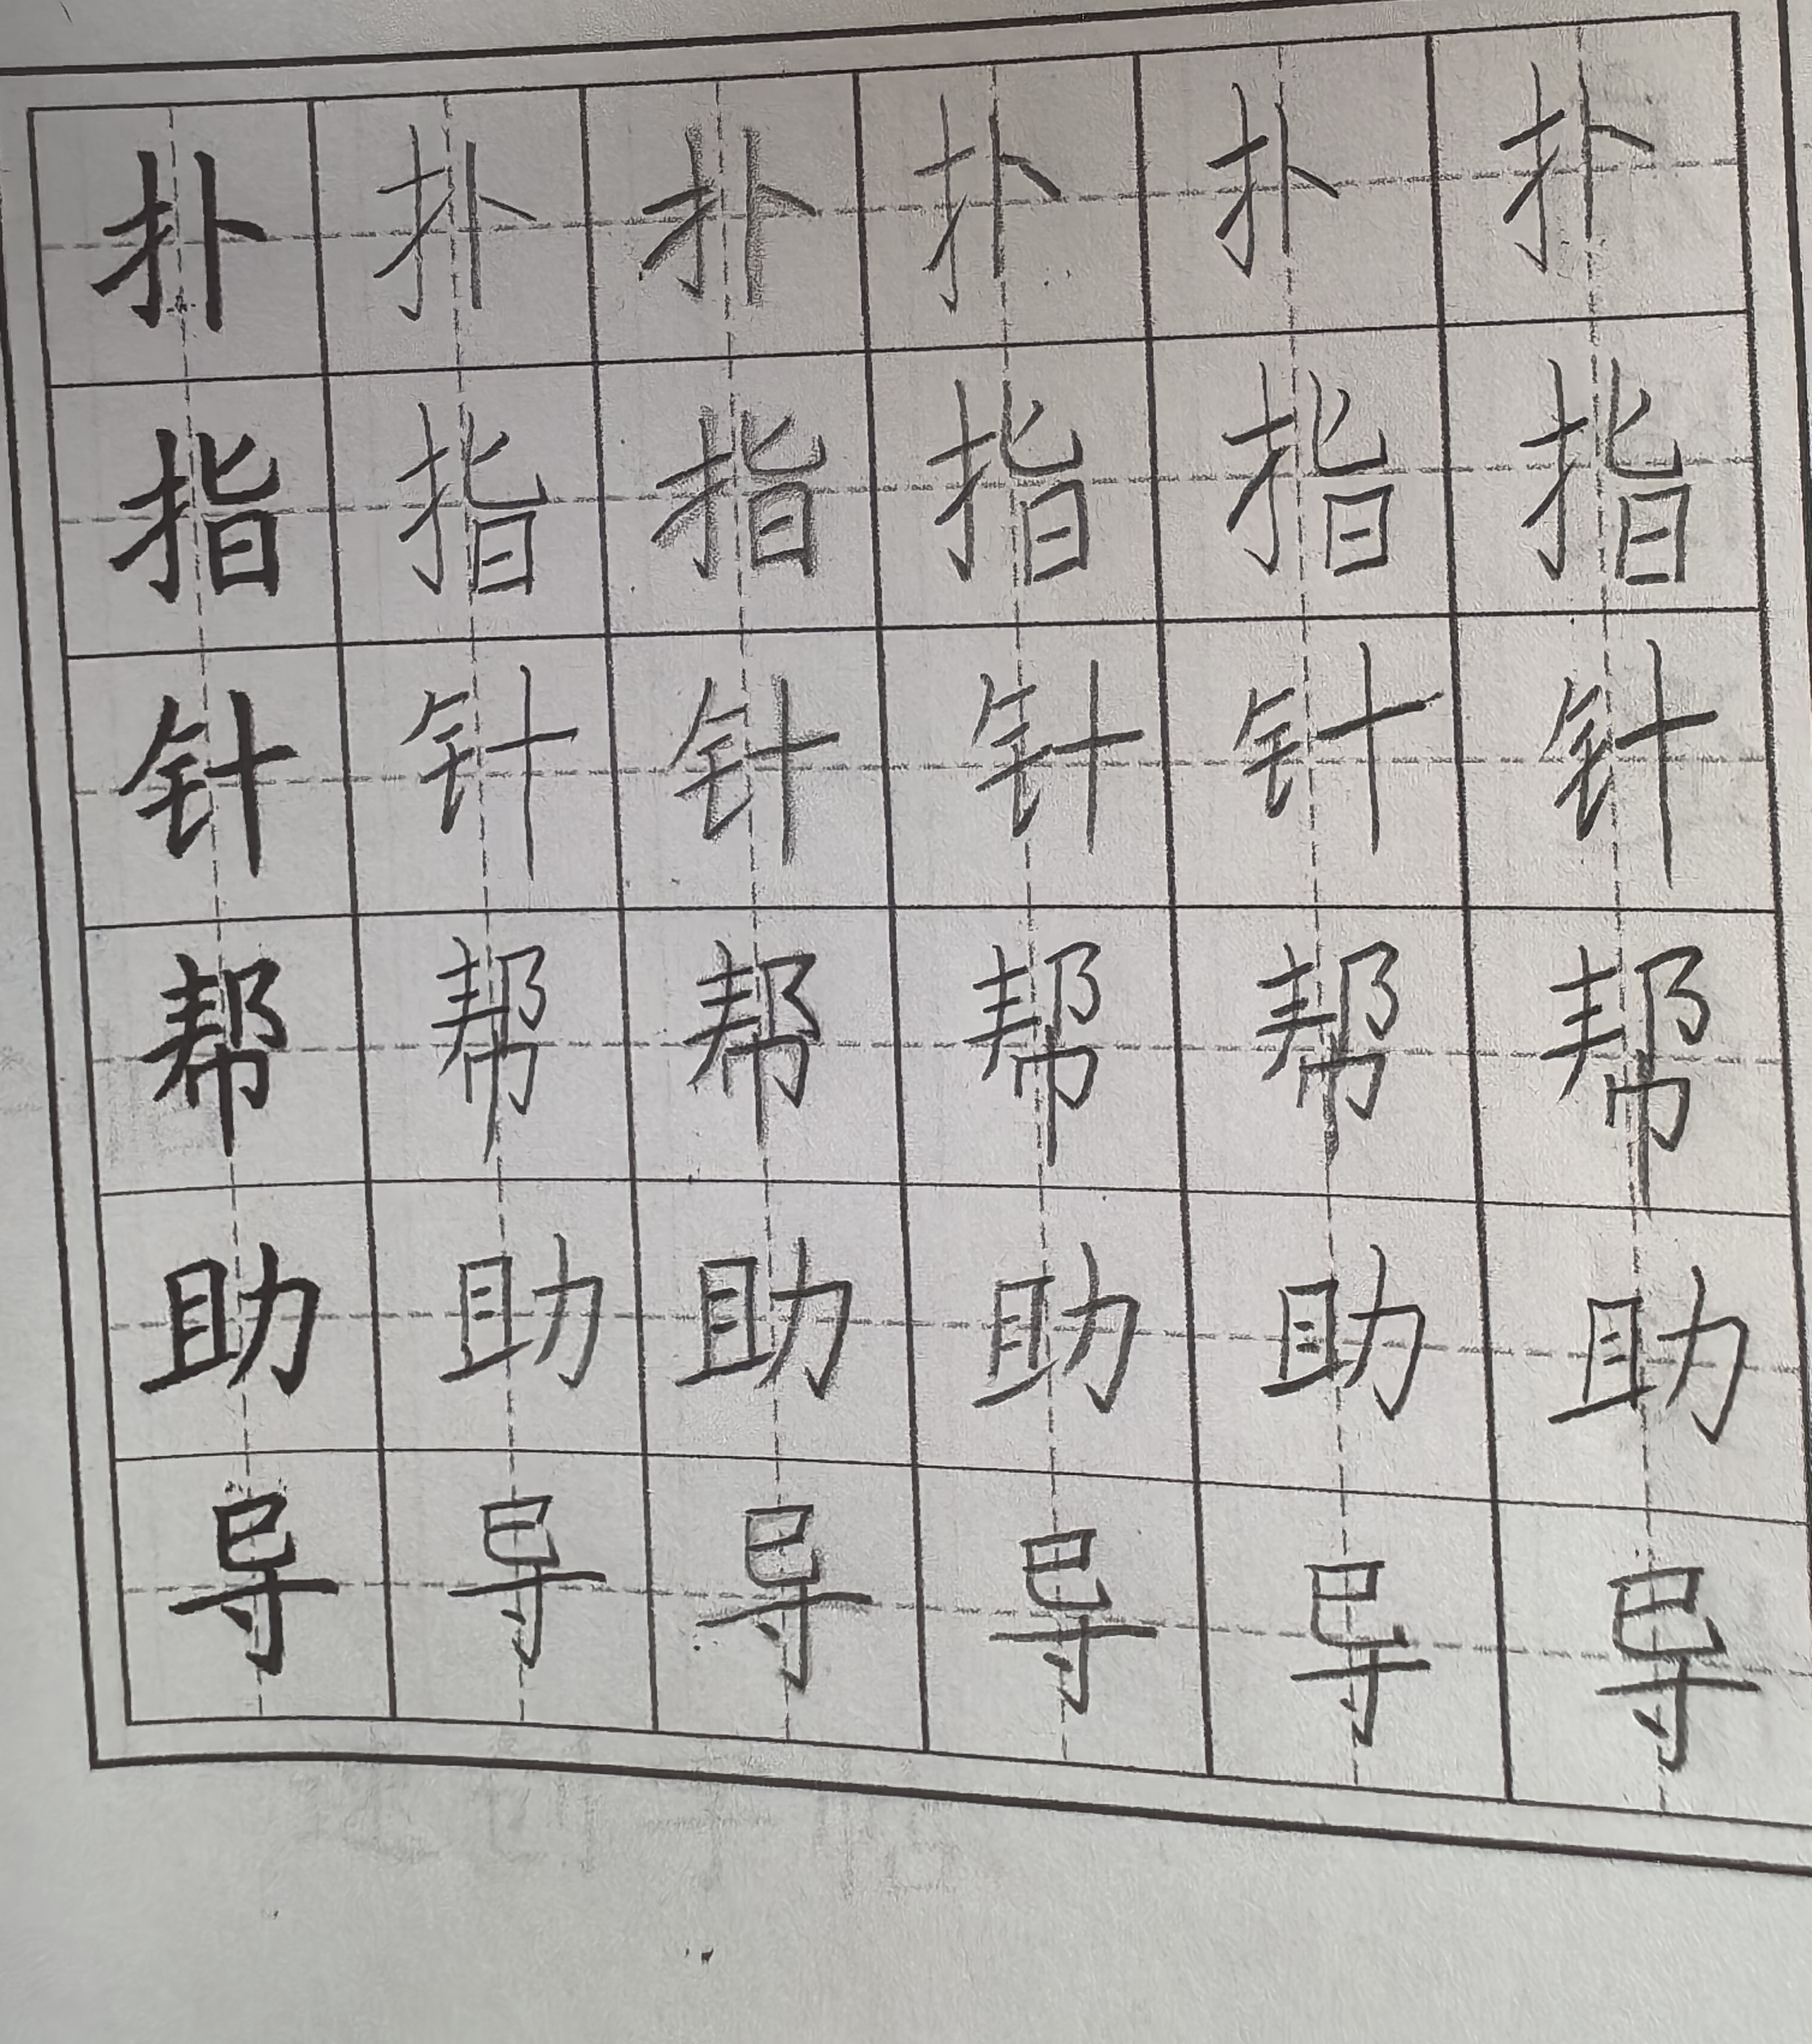 扑 扑 扑 扑 扑 扑
指 指 指 指 指 指
针 针 针 针 针 针
帮 帮 帮 帮 帮 帮
助 助 助 助 助 助
导 导 导 导 导 导